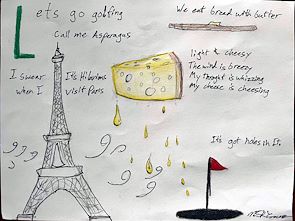 Lets go golfing
Call me Asparagus
We eat bread with butter
I swear It's Hilarious
when I visit Paris
light & cheesy
The wind is breezy
My thought is whizzing
My cheese is cheesing
It's got holes in It.